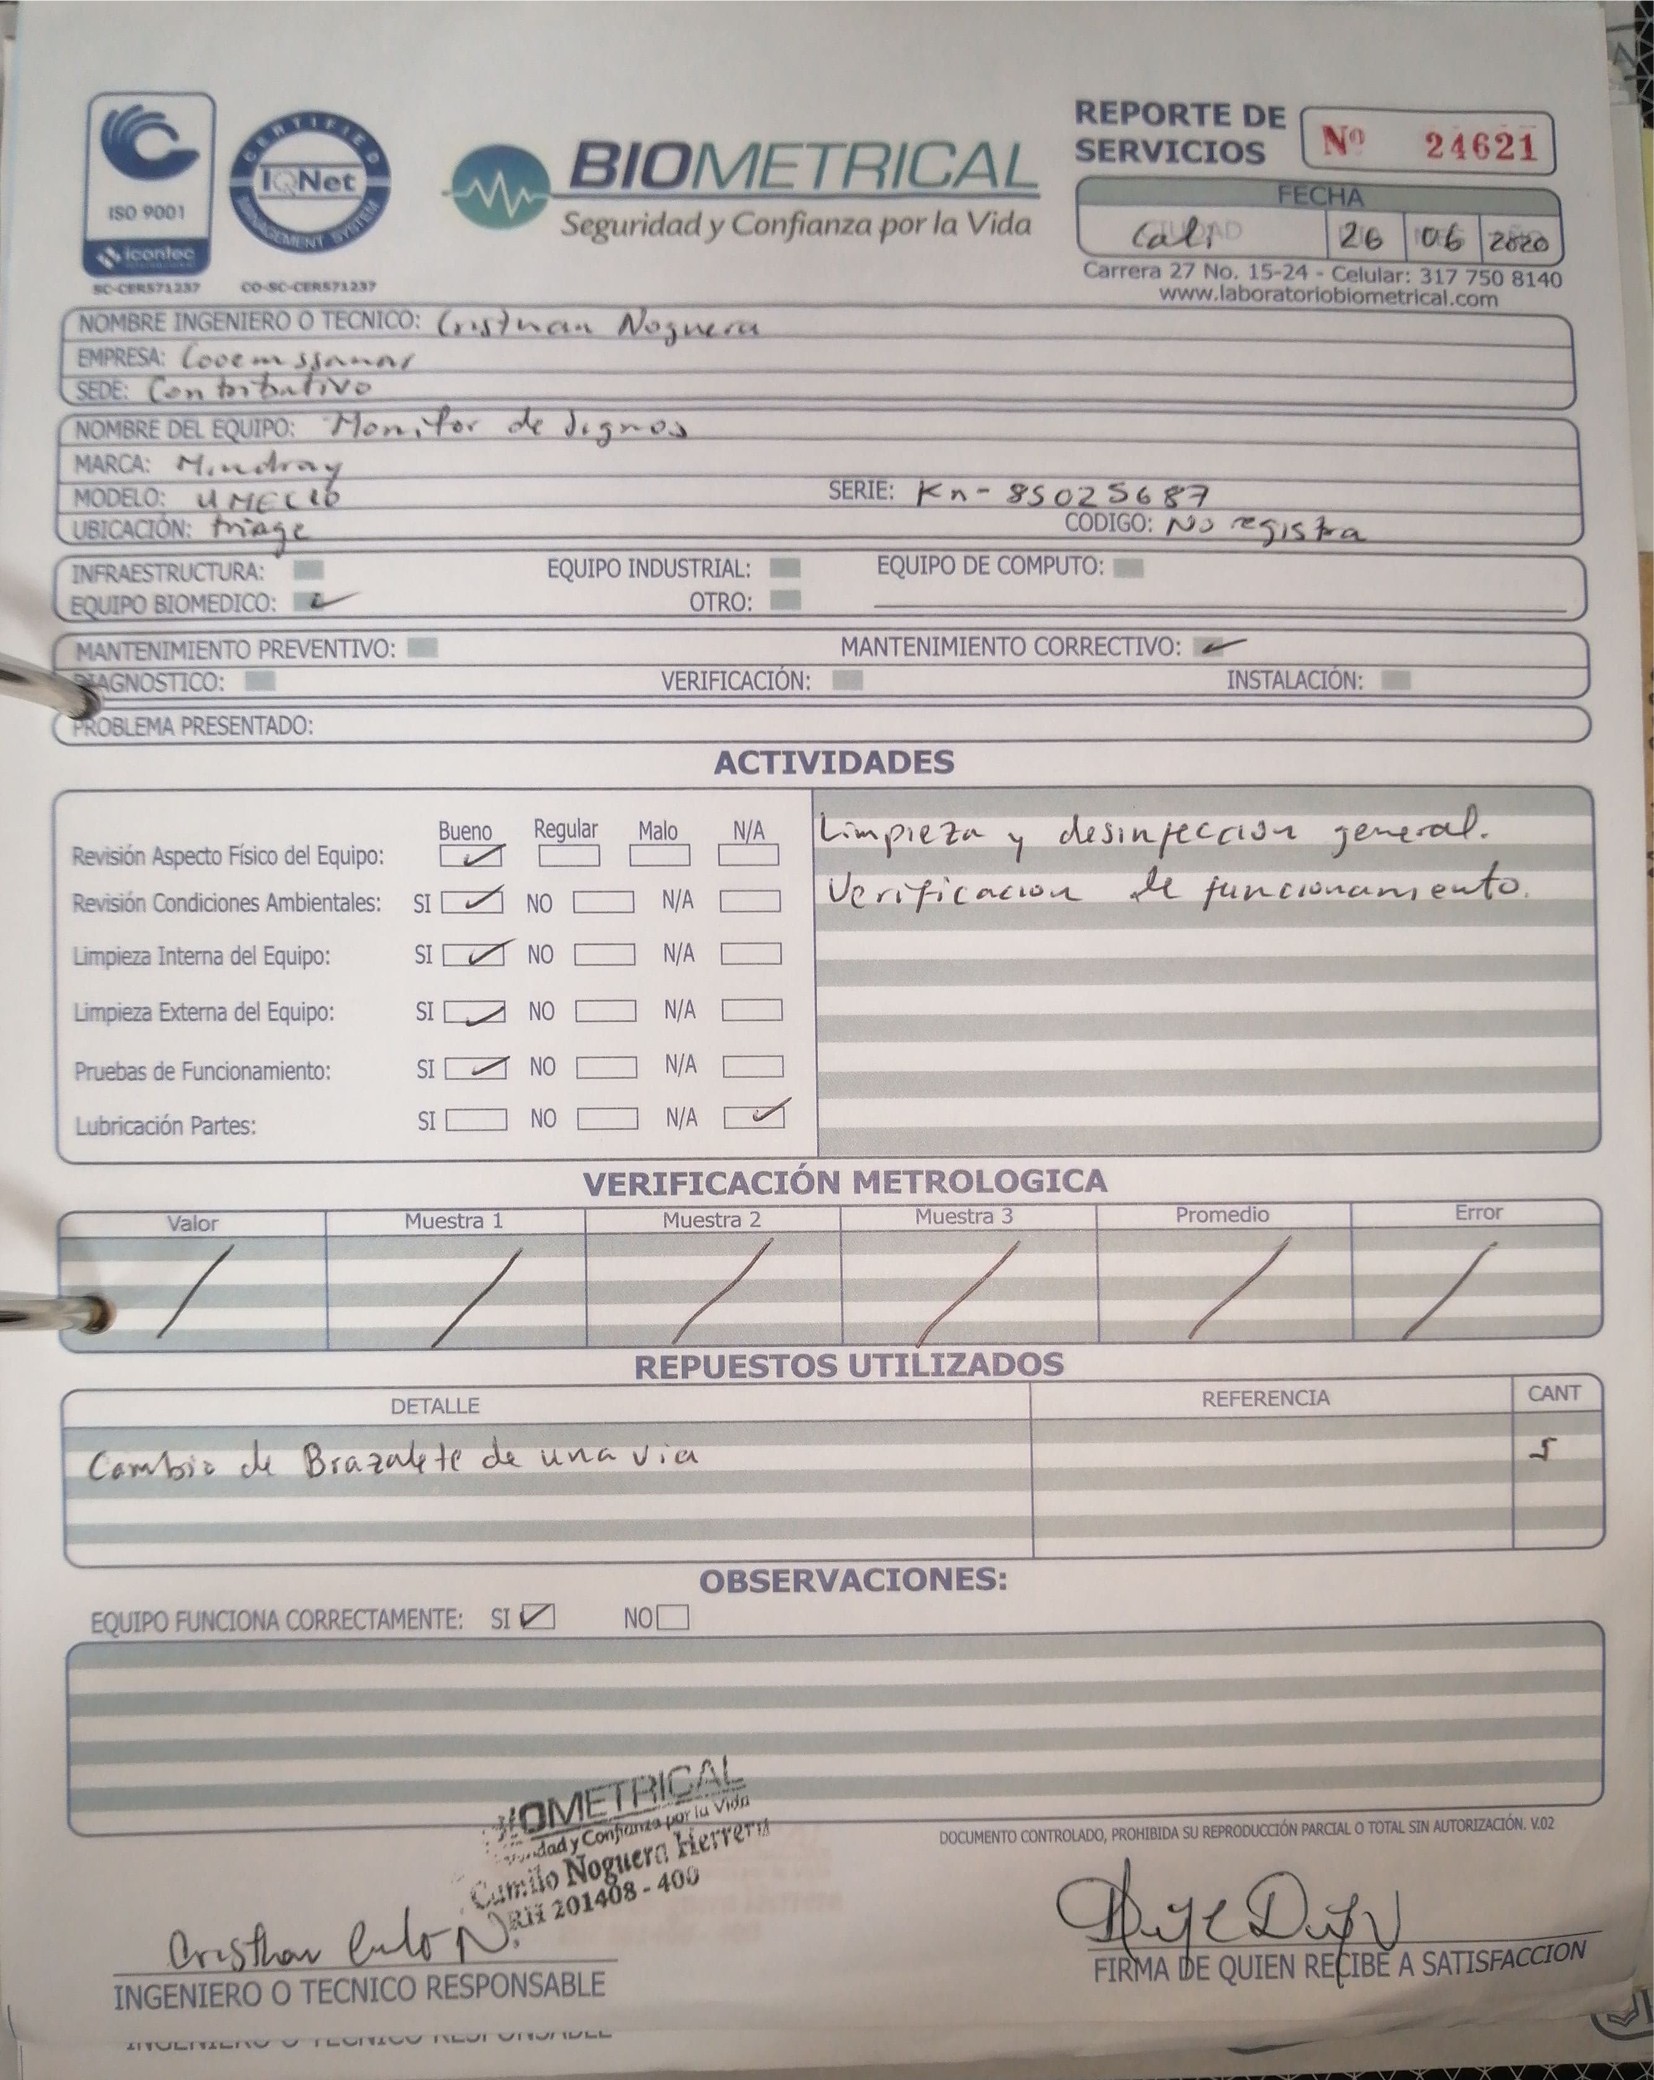 REPORTE DE
SERVICIOS
Nº 24621
ISO 9001
icontec
SC-CER571237
CERTIFIED
IQNet
MANAGEMENT SYSTEM
CO-SC-CER571237
BIOMETRICAL
Seguridad y Confianza por la Vida
FECHA
Cali 26 06 2020
Carrera 27 No. 15-24 - Celular: 317 750 8140
www.laboratoriobiometrical.com
NOMBRE INGENIERO O TECNICO: Cristhian Noguera
EMPRESA: Cooemssanar
SEDE: Contributivo
NOMBRE DEL EQUIPO: Monitor de signos
MARCA: Mindray
MODELO: UMEC10 SERIE: Kn-85025687
UBICACIÓN: triage CODIGO: No registra
INFRAESTRUCTURA: EQUIPO INDUSTRIAL: EQUIPO DE COMPUTO:
EQUIPO BIOMEDICO: OTRO:
MANTENIMIENTO PREVENTIVO: MANTENIMIENTO CORRECTIVO:
DIAGNOSTICO: VERIFICACIÓN: INSTALACIÓN:
PROBLEMA PRESENTADO:
ACTIVIDADES
Bueno Regular Malo N/A
Revisión Aspecto Físico del Equipo:
Revisión Condiciones Ambientales: SI NO N/A
Limpieza Interna del Equipo: SI NO N/A
Limpieza Externa del Equipo: SI NO N/A
Pruebas de Funcionamiento: SI NO N/A
Lubricación Partes: SI NO N/A
Limpieza y desinfeccion general.
Verificacion de funcionamiento.
VERIFICACIÓN METROLOGICA
Valor Muestra 1 Muestra 2 Muestra 3 Promedio Error
REPUESTOS UTILIZADOS
DETALLE REFERENCIA CANT
Cambio de Brazalete de una via 5
OBSERVACIONES:
EQUIPO FUNCIONA CORRECTAMENTE: SI NO
OMETRICAL
dad y Confianza por la Vida
Camilo Noguera Herrera
RH 201408-400
DOCUMENTO CONTROLADO, PROHIBIDA SU REPRODUCCIÓN PARCIAL O TOTAL SIN AUTORIZACIÓN. V.02
Cristhian
INGENIERO O TECNICO RESPONSABLE
FIRMA DE QUIEN RECIBE A SATISFACCION
INGENIERO O TECNICO RESPONSABLE